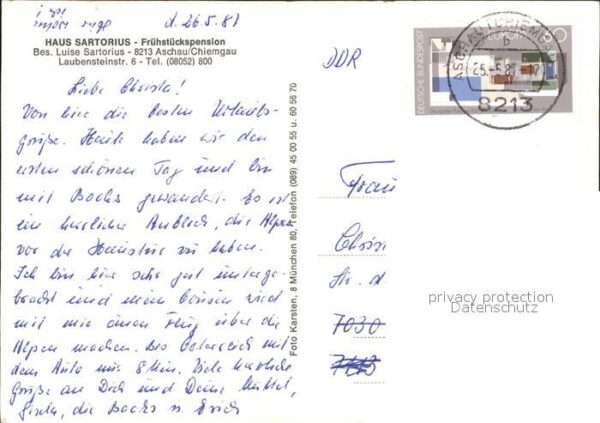 d. 26.5.87
HAUS SARTORIUS - Frühstückspension
Bes. Luise Sartorius - 8213 Aschau/Chiemgau
Laubensteinstr. 6 - Tel. (08052) 800
Liebe Christa!
Von hier die besten Urlaubs-
grüße. Heute haben wir den
ersten schönen Tag und bin
mit Bochs gewandert. Es ist
ein herrlicher Anblick, die Alpen
vor der Haustür zu haben.
Ich bin hier sehr gut unterge-
bracht und mein Cousin wird
mit mir einen Flug über die
Alpen machen. Bis Österreich mit
dem Auto nur 8 km. Viele herzliche
Grüße an Dich und Deine Mutti,
Gisela, die Bochs u. Erich
Foto Karsten, 8 München 80, Telefon (089) 45 00 55 u. 60 56 70
DDR
DEUTSCHE BUNDESPOST
ASCHAU I CHIEMGAU
b
8213
Frau
Chris
Str. d.
7030
privacy protection
Datenschutz